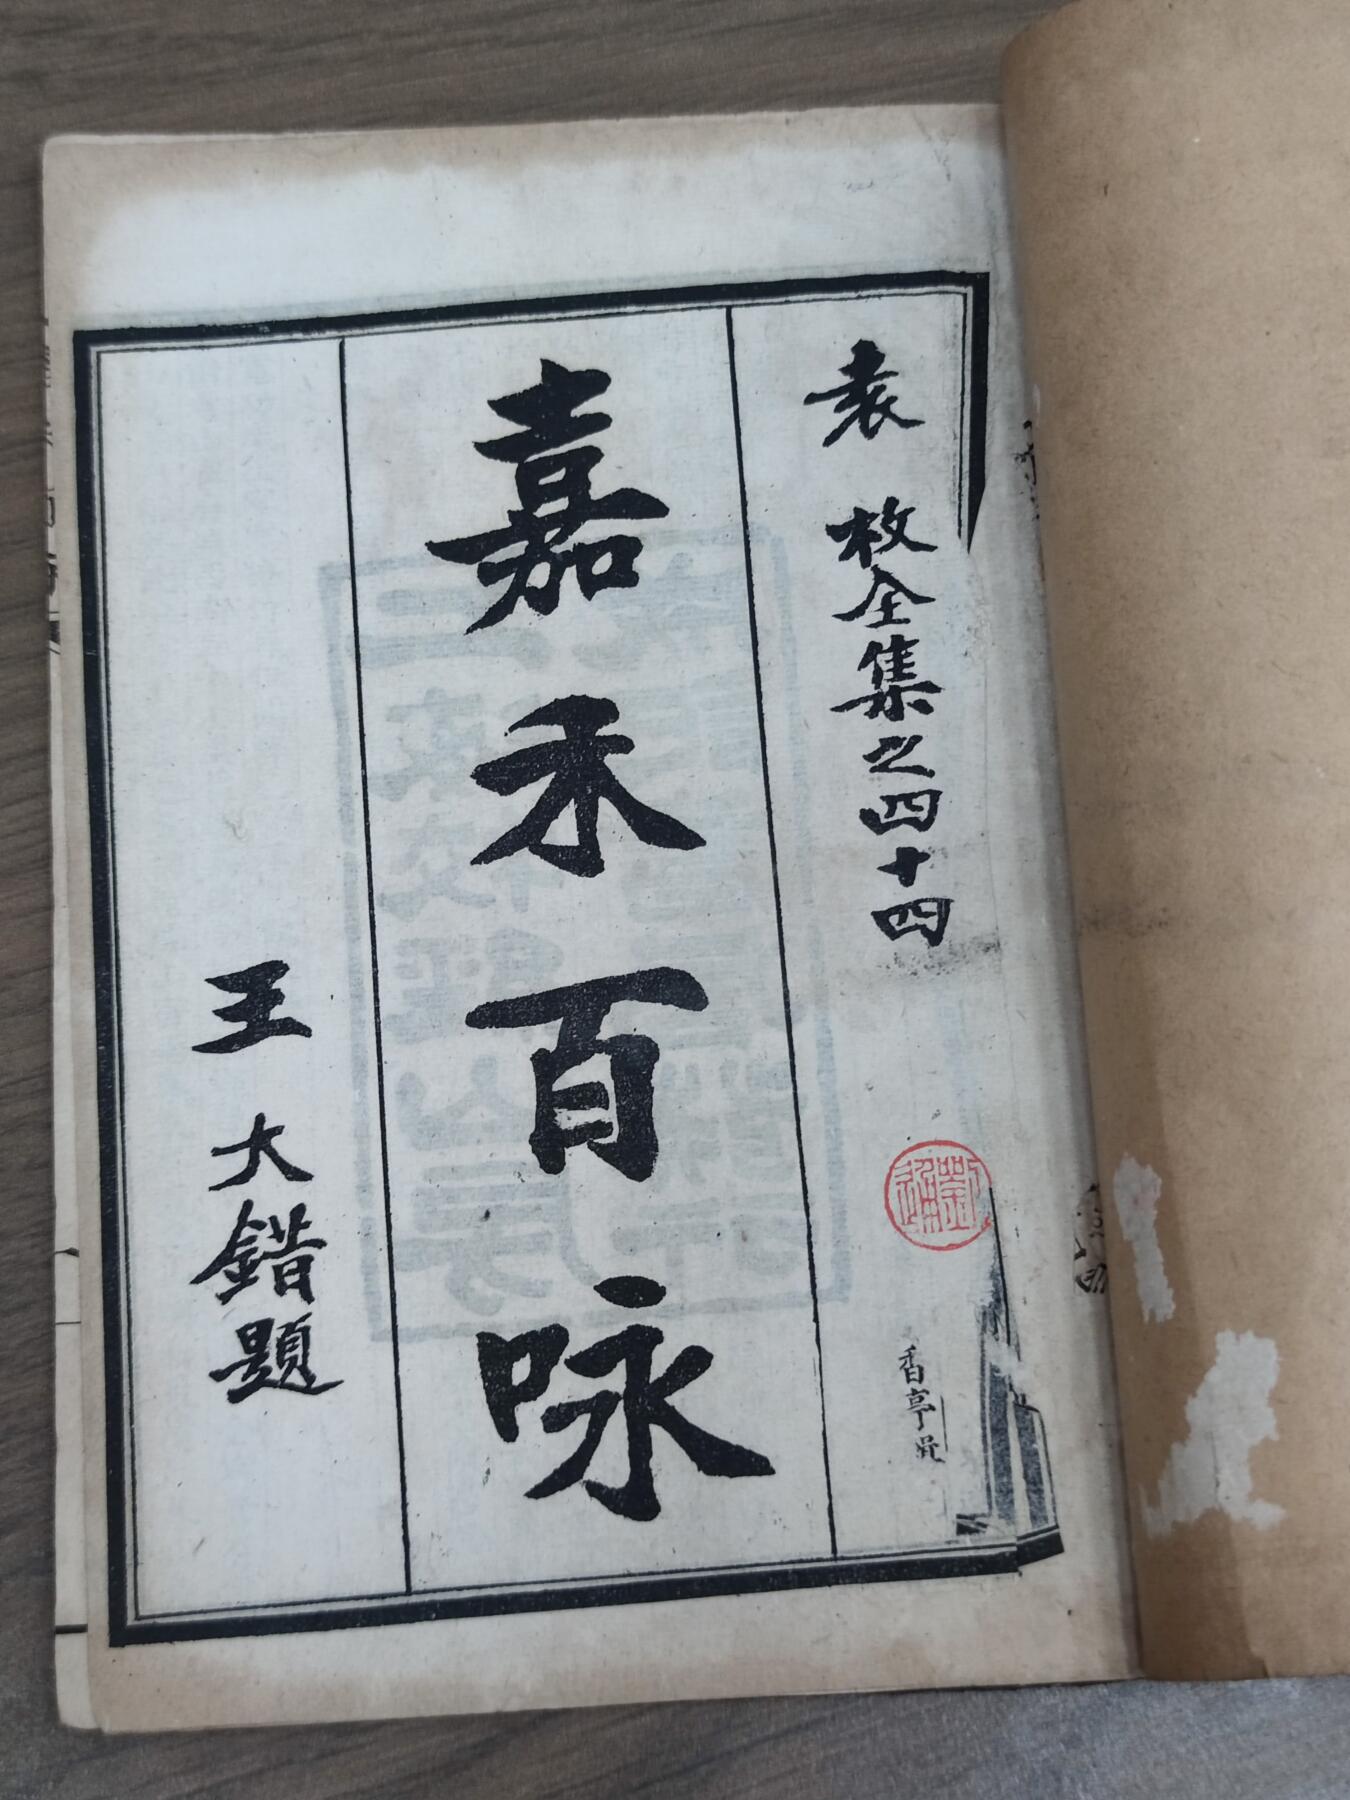 袁枚全集之四十四
香亭
嘉禾百咏
王大錯題